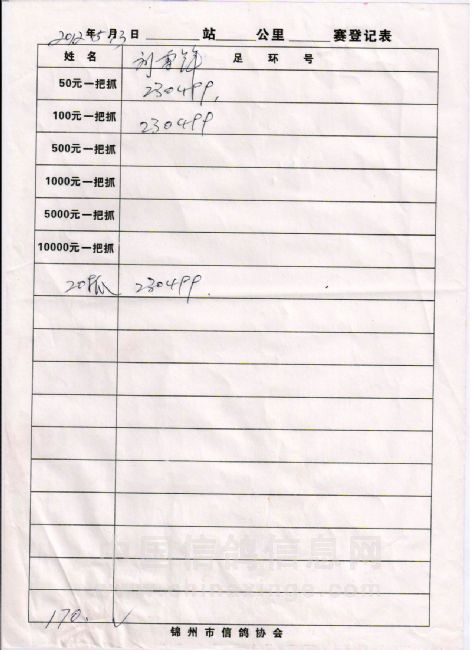 2012年5月13日______站______公里______赛登记表
姓名 刘雪锋 足环号
50元一把抓 230499.
100元一把抓 230499
500元一把抓
1000元一把抓
5000元一把抓
10000元一把抓
20抓 230499.
中国信鸽信息网
www.chinaxinge.com
170. √
锦州市信鸽协会